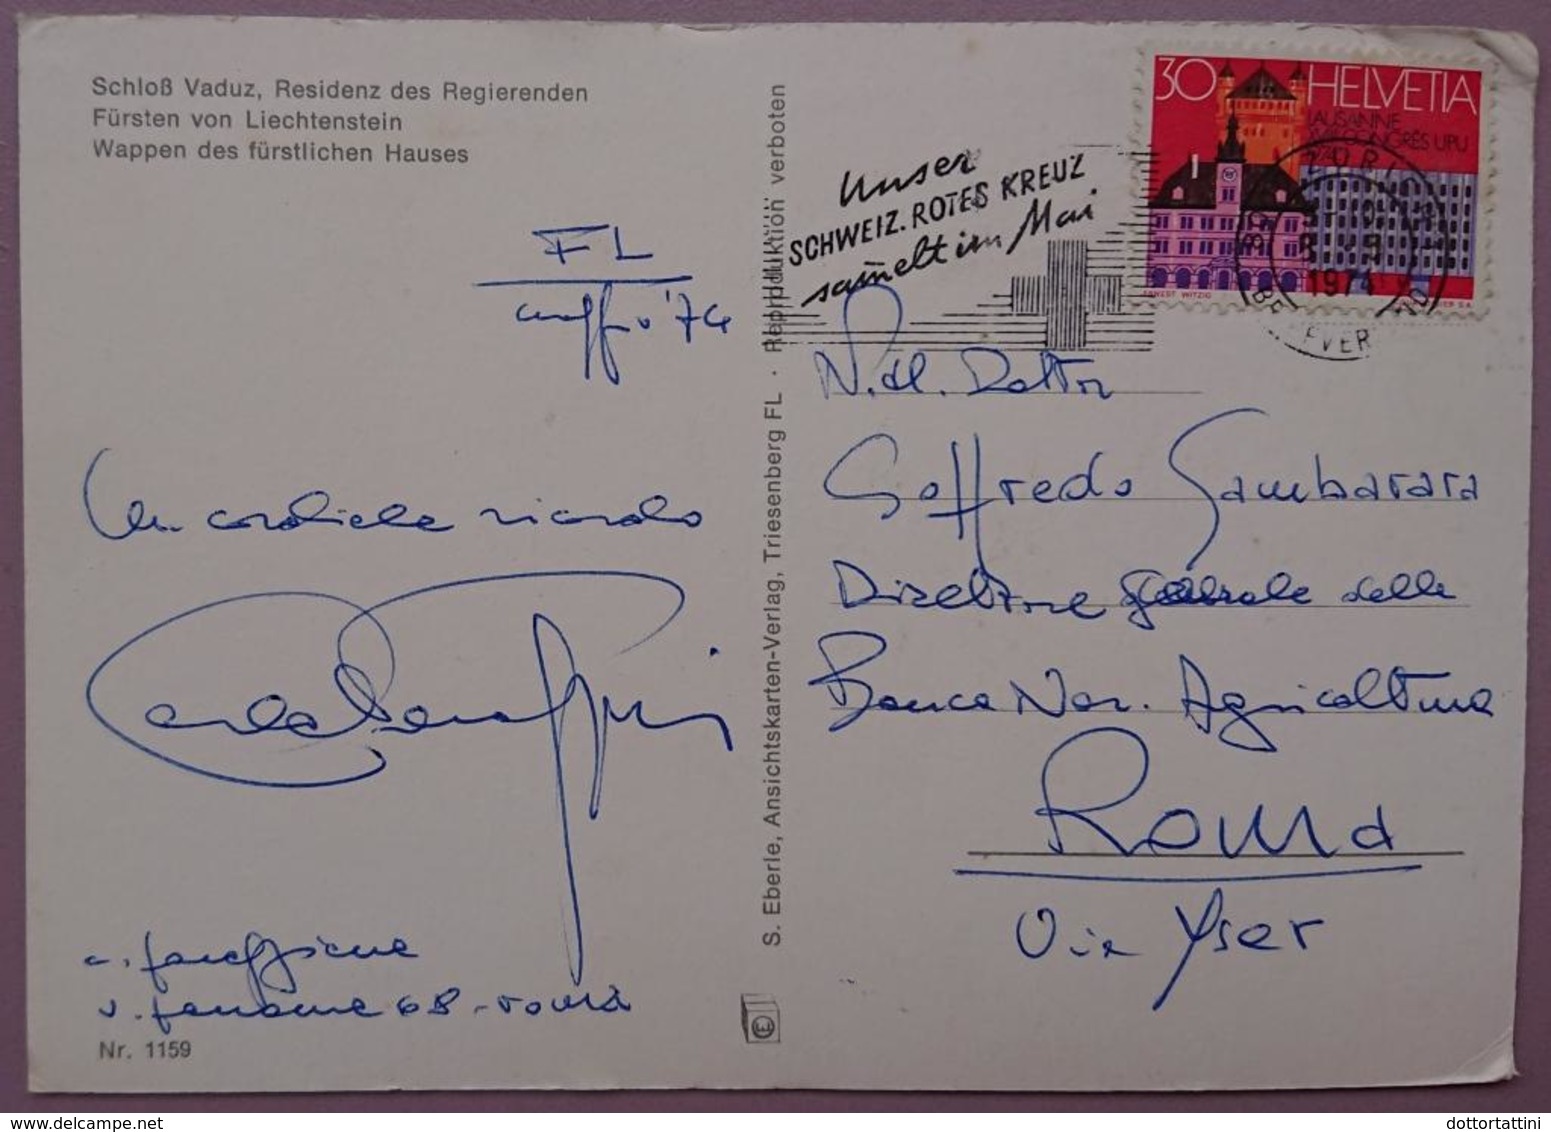 Schloß Vaduz, Residenz des Regierenden
Fürsten von Liechtenstein
Wappen des fürstlichen Hauses
FL
'74
Un cordiale ricordo
68 - Roma
Nr. 1159
S. Eberle, Ansichtskarten-Verlag, Triesenberg FL · Reproduktion verboten
Unser
SCHWEIZ. ROTES KREUZ
sam̄elt im Mai
30 HELVETIA
LAUSANNE
CONGRÈS UPU
1974
ERNST WITZIG
1974
N.H. Dottor
Goffredo Gambarara
Direttore Generale della
Banca Naz. Agricoltura
Roma
Via Yser
dottortattini